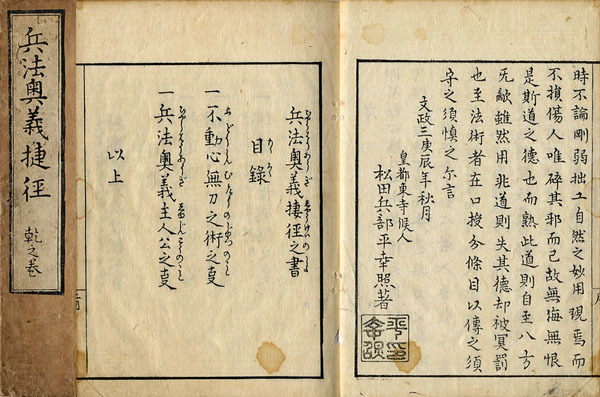 兵法奥義捷徑
乾之卷
時不論剛弱拙工自然之妙用現焉而
不損傷人唯碎其邪而已故無侮無恨
是斯道之德也而熟此道則自至八方
旡敵雖然用非道則失其德却被冥罰
也至法術者在口授分條目以傳之須
守之須慎之尓言
文政三庚辰年秋月
皇都東寺候人
松田兵部平幸照著
兵法奥義捷徑之書
目錄
一不動心無刀之術之叓
一兵法奥義主人公之叓
以上